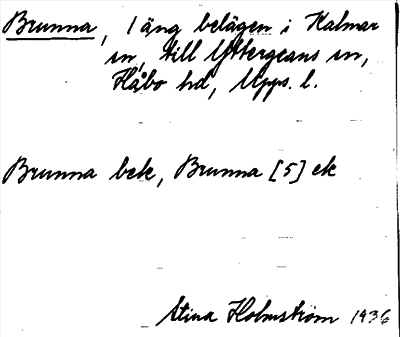 Brunna, 1 äng belägen i Kalmar
sn, till Yttergrans sn,
Håbo hd, Upps. l.
Brunna bek, Brunna [5] ek
Stina Holmström 1936